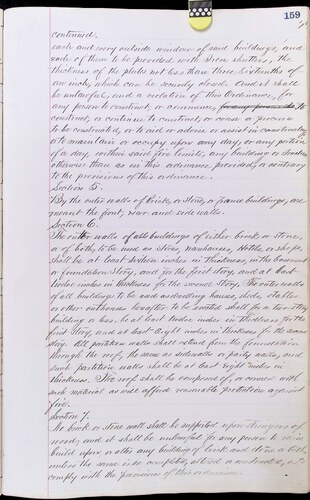 159
continued.
each and every outside window of said buildings, and
each of them to be provided with Iron shutters, the
thickness of the plates not less than three sixteenths of
an inch, which can be securely closed. And it shall
be unlawful, and a violation of this Ordinance, for
any person to construct, or commence, to
construct, or continue to construct, or cause or procure
to be constructed, or to aid or advise or assist in constructing
or to maintain or occupy upon any day, or any portion
of a day, within said fire limits, any building or structure
otherwise than as in this ordinance provided, or contrary
to the provisions of this ordinance.
Section 5.
By the outer walls of brick, or stone, or frame buildings, are
meant the front, rear and side walls.
Section 6.
The outer walls of all buildings of either brick, or stone,
or of both, to be used as stores, warehouses, Hotels, or shops,
shall be at least sixteen inches in thickness, in the basement
or foundation Story, and for the first story, and at least
twelve inches in thickness for the second Story. The outer walls
of all buildings to be used as dwelling houses, sheds, stables
or other outhouses hereafter to be erected shall for a two story
building or less, be at least twelve inches in thickness for the
first Story, and at least Eight inches in thickness for the second
story. All partition walls shall extend from the foundation
through the roof, the same as sidewalls or party walls, and
such partition walls shall be at least eight inches in
thickness. The roof shall be composed of, or covered with
such material as will afford reasonable protection against
fire.
Section 7.
No brick or stone wall shall be supported upon
wood, and it shall be unlawful for any person to raise
build upon or alter any building of brick and stone or both,
unless the same is so altered or constructed, as to
comply with the provisions of this ordinance.